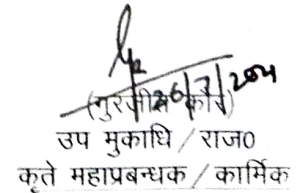 (गुरजीत कौर)
उप मुकाधि / राज०
कृते महाप्रबन्धक / कार्मिक